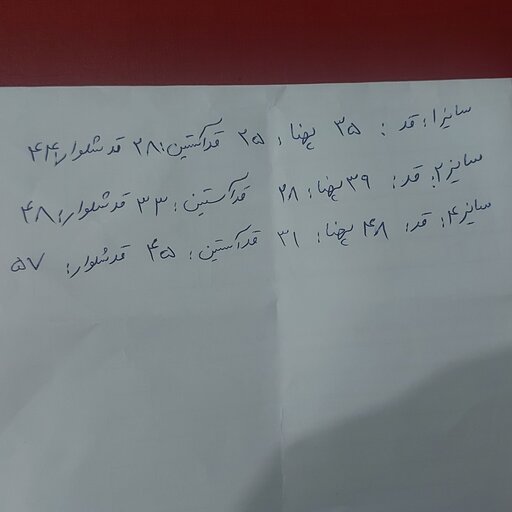 سایز ۱: قد: ۳۵ پهنا: ۲۵ قد آستین: ۲۸ قد شلوار: ۴۴
سایز ۲: قد: ۳۹ پهنا: ۲۸ قد آستین: ۳۳ قد شلوار: ۴۸
سایز ۴: قد: ۴۸ پهنا: ۳۱ قد آستین: ۴۵ قد شلوار: ۵۷